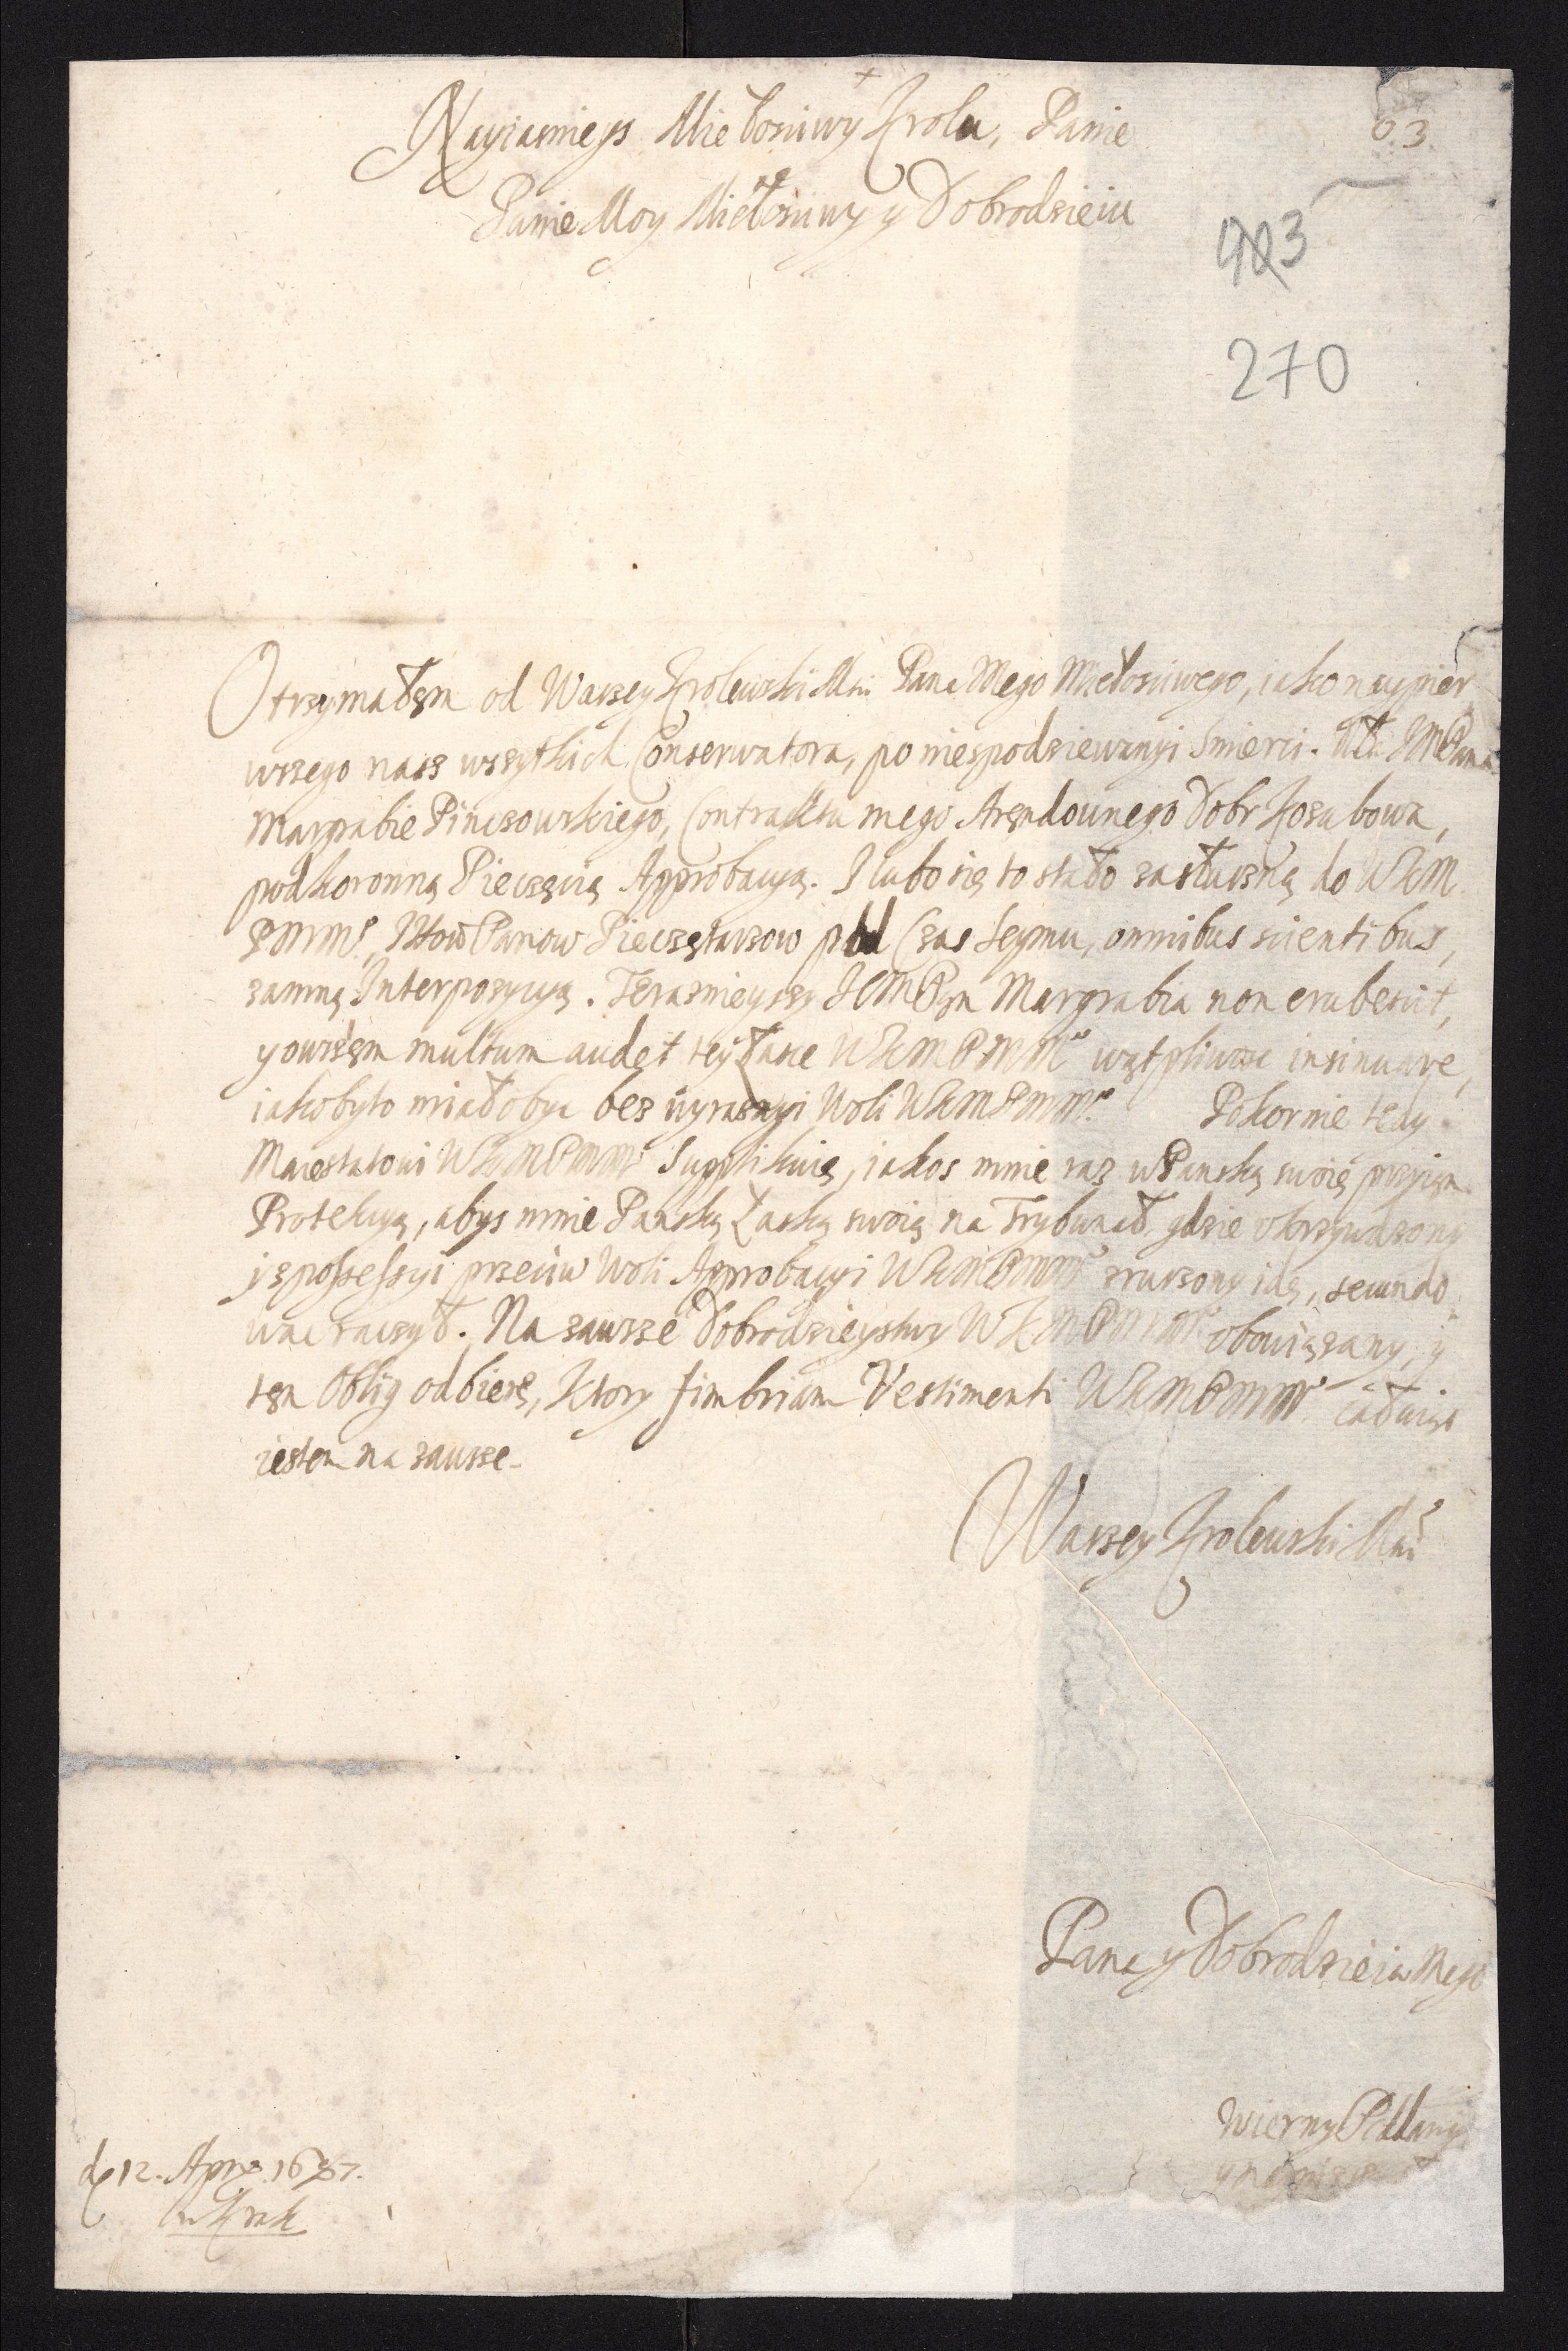 +
Nayiasnieys Miełosciwy Krolu, Panie
Panie Moy Miełosciwy y Dobrodzieiu
63
403
270
Otrzymałęm od Waszey Krolewski Mci Pana Mego Miełosciwego, iako naypier
wszego nasz wszytkich Conserwatora, po niespodziewanyi Smierci. JMPana
Margrabie Pinczowskiego, Contraktu mego Aręndownego Dobr Kozubowa,
pod koronną Pieczęcią Approbacyą. I lubo się to stało za słuszną do WKM
PMMo, IHow Panow Pieczętarzow pod Czas Seymu, omnibus scientibus,
zamną Interpozycyą. Terasnieyszy JEMPan Margrabia non erubescit,
y owszęm multum audet tey łasce WKMPMMo wątpliwosc insinuare,
iakobyto miało byc bez wyraznyi Woli WKMPMMo Pokornie tedy
Maiestatowi WKMPMMo Supplikuię, iakos mnie raz w Panską swoię przyią
Protekcyą, abys mnie Panską Łaską swoią na Trybunał gdzie vkrzywdzony
y z possessyi przeciw Woli Approbacyi WKMPMMo zruszony idę, secundo
wac raczył. Na zawsze Dobrodzieystwy WKMPMMo obowiązany, y
tęn Oblig odbierę, Ktory fimbriam Vestimenti WKMPMMo całuiąc
iestem na zawsze.
Waszey Krolewski Mci
Pana y Dobrodzieia Mego
Wierny Poddany
d 12. Apr. 1687.
w Krak